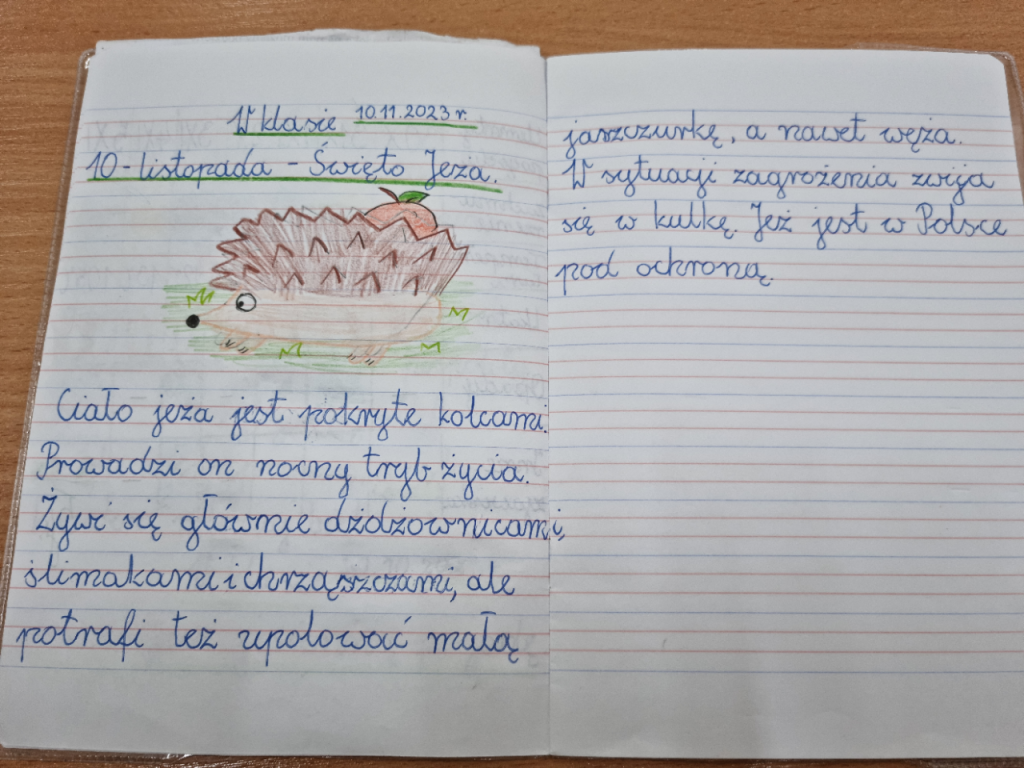 W klasie 10.11.2023 r.
10-listopada - Święto Jeża.
Ciało jeża jest pokryte kolcami.
Prowadzi on nocny tryb życia.
Żywi się głównie dżdżownicami,
ślimakami i chrząszczami, ale
potrafi też upolować małą
jaszczurkę, a nawet węża.
W sytuacji zagrożenia zwija
się w kulkę. Jeż jest w Polsce
pod ochroną.